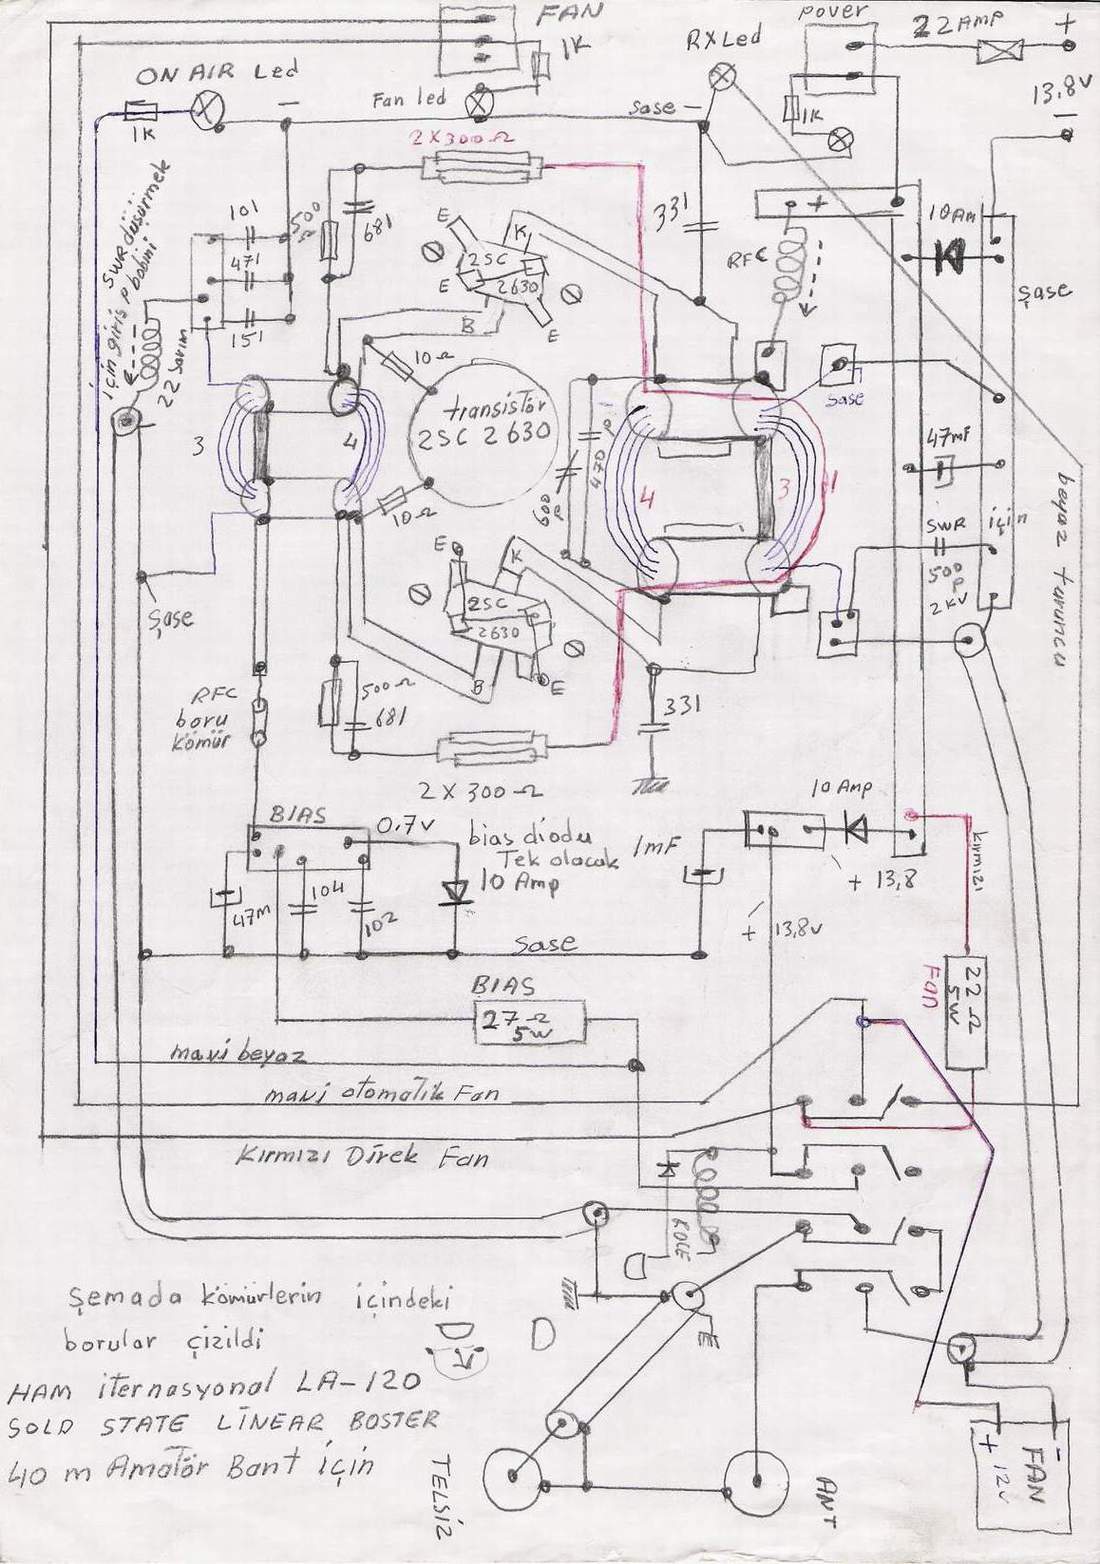 FAN
1K
Pover
22 AMP
+
13.8V
–
RX Led
ON AIR Led
Fan led
şase –
1K
1K
–
2 X 300 Ω
SWR düşürmek
için giriş p bobini
22 sarım
101
471
151
500
681
E
K
2SC
2630
E
E
B
331
+
RFC
10 Am
Şase
10 Ω
transistör
2SC 2630
10 Ω
3
4
470 P
600 P
4
3
1
sase
47mF
SWR için
500 P
2KV
beyaz turuncu
Şase
E
K
2SC
2630
B
E
RFC
boru
kömür
500 Ω
681
331
2 X 300 Ω
BIAS
0.7V
bias diodu
Tek olacak
10 Amp
1mF
10 Amp
+ 13,8
+ 13,8V
kırmızı
47M
104
102
Sase
BIAS
27 Ω
5W
Fan
22 Ω
5W
mavi beyaz
mavi otomatik Fan
Kırmızı Direk Fan
D
E
D
D
Şemada kömürlerin içindeki
borular çizildi
HAM iternasyonal LA-120
SOLD STATE LİNEAR BOSTER
40 m Amatör Bant için
TELSİZ
ANT
+ 12V
–
FAN